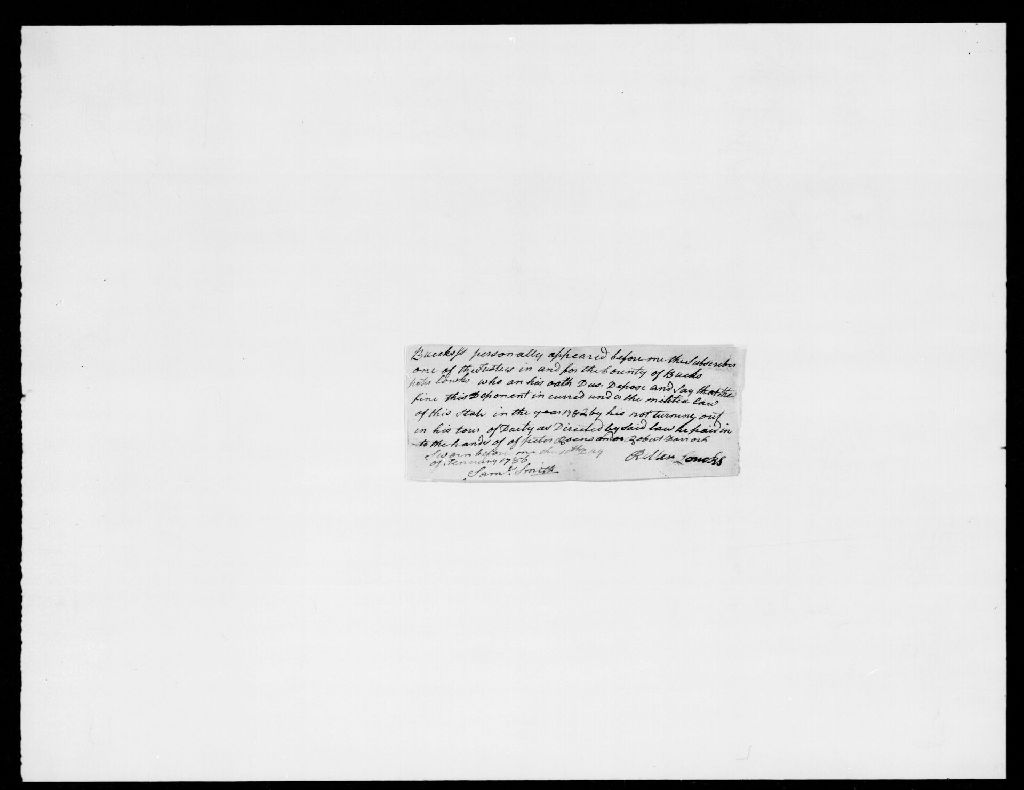 Bucks ss personally appeared before me the Subscriber
one of the Justices in and for the County of Bucks
who on his oath Due Depose and Say that the
fine this Deponent in curred under the militia law
of this State in the year 1782 by his not turning out
in his tour of Duty as Directed by Said law he paid in
to the hands of of peter or Robert Darroch
Sworn before me the Day
of Jenuary 1786
Saml. Smith